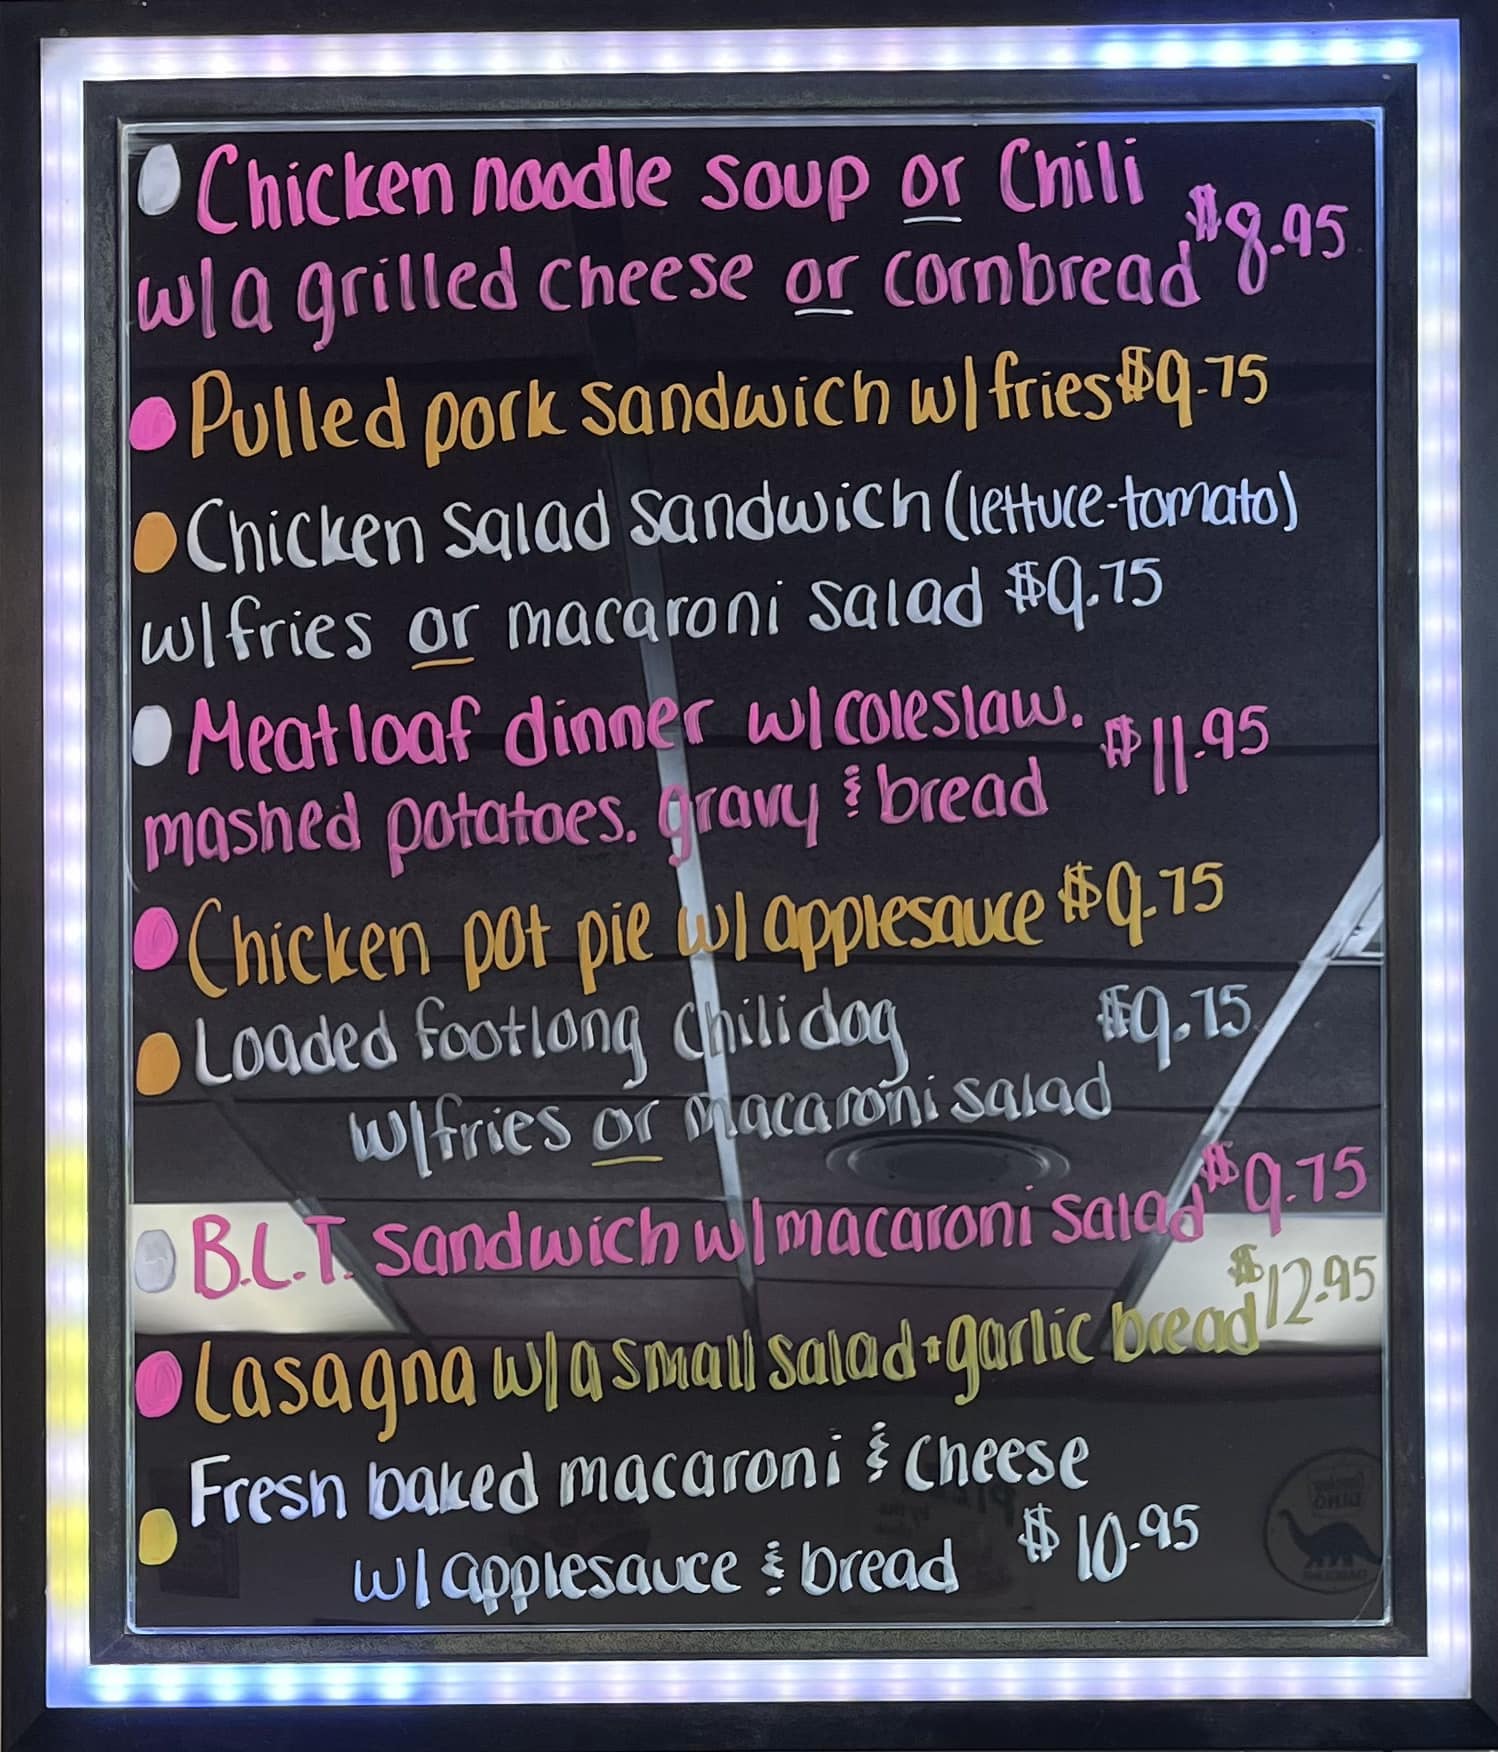 Chicken noodle soup or Chili
w/a grilled cheese or cornbread $8.95
Pulled pork sandwich w/fries $9.75
Chicken salad sandwich (lettuce-tomato)
w/fries or macaroni salad $9.75
Meatloaf dinner w/coleslaw. $11.95
mashed potatoes. gravy & bread
Chicken pot pie w/applesauce $9.75
Loaded footlong chili dog $9.75
w/fries or macaroni salad
B.L.T. sandwich w/macaroni salad $9.75
Lasagna w/a small salad + garlic bread $12.95
Fresh baked macaroni & cheese
w/applesauce & bread $10.95